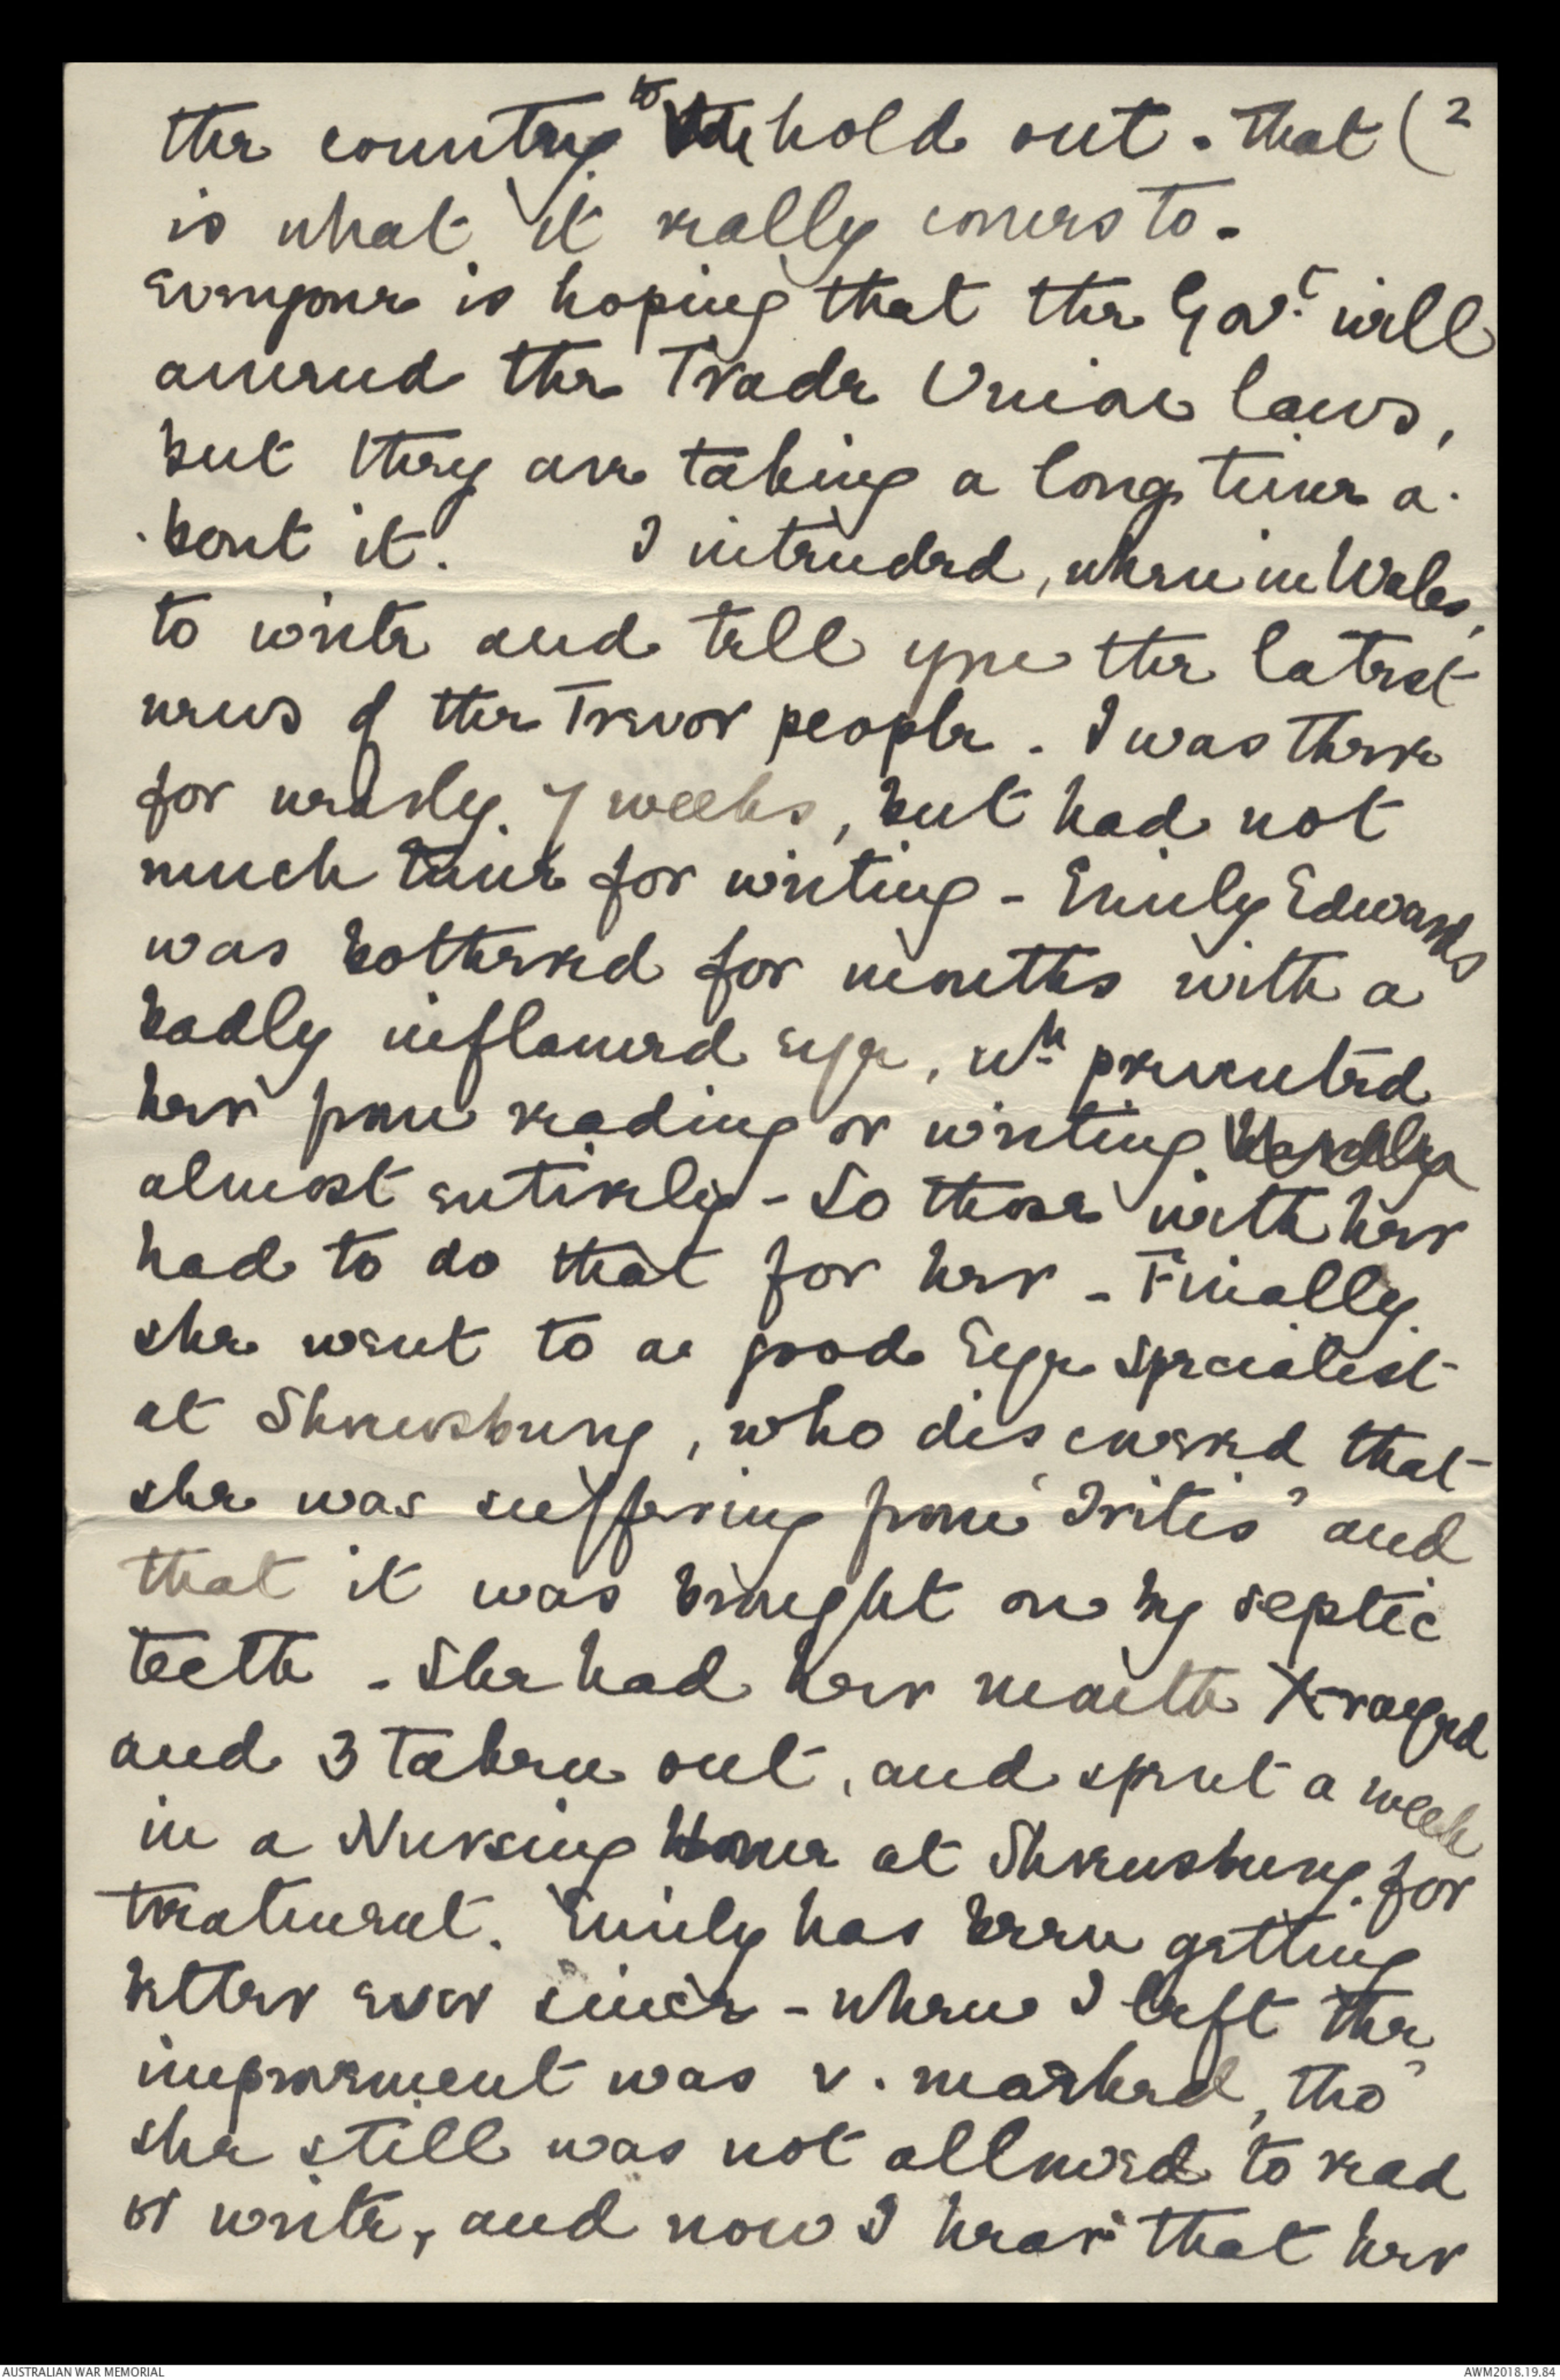 the country to hold out. That (2
is what it really comes to.
Everyone is hoping that the Govt. will
amend the Trade Union laws,
but they are taking a long time a-
-bout it. I intended, when in Wales,
to write and tell you the latest
news of the Trevor people. I was there
for nearly 7 weeks, but had not
much time for writing - Emily Edwards
was bothered for months with a
badly inflamed eye, wh. prevented
her from reading or writing
almost entirely - So those with her
had to do that for her - Finally
she went to a good Eye Specialist
at Shrewsbury, who discovered that
she was suffering from 'Iritis' and
that it was brought on by septic
teeth - She had her mouth X-rayed
and 3 taken out, and spent a week
in a Nursing Home at Shrewsbury for
treatment. Emily has been getting
better ever since - when I left the
improvement was v. marked, tho'
she still was not allowed to read
or write, and now I hear that her
AUSTRALIAN WAR MEMORIAL AWM2018.19.84